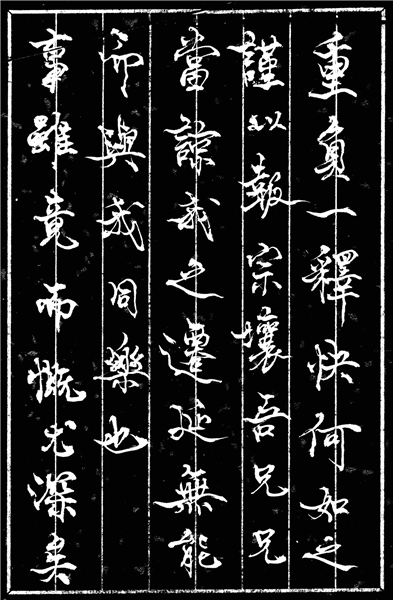 重負一釋快何如之
謹以報宗壤吾兄兄
當諒我之遷延無能
而與我同樂也
事雖竟而慨尤深矣